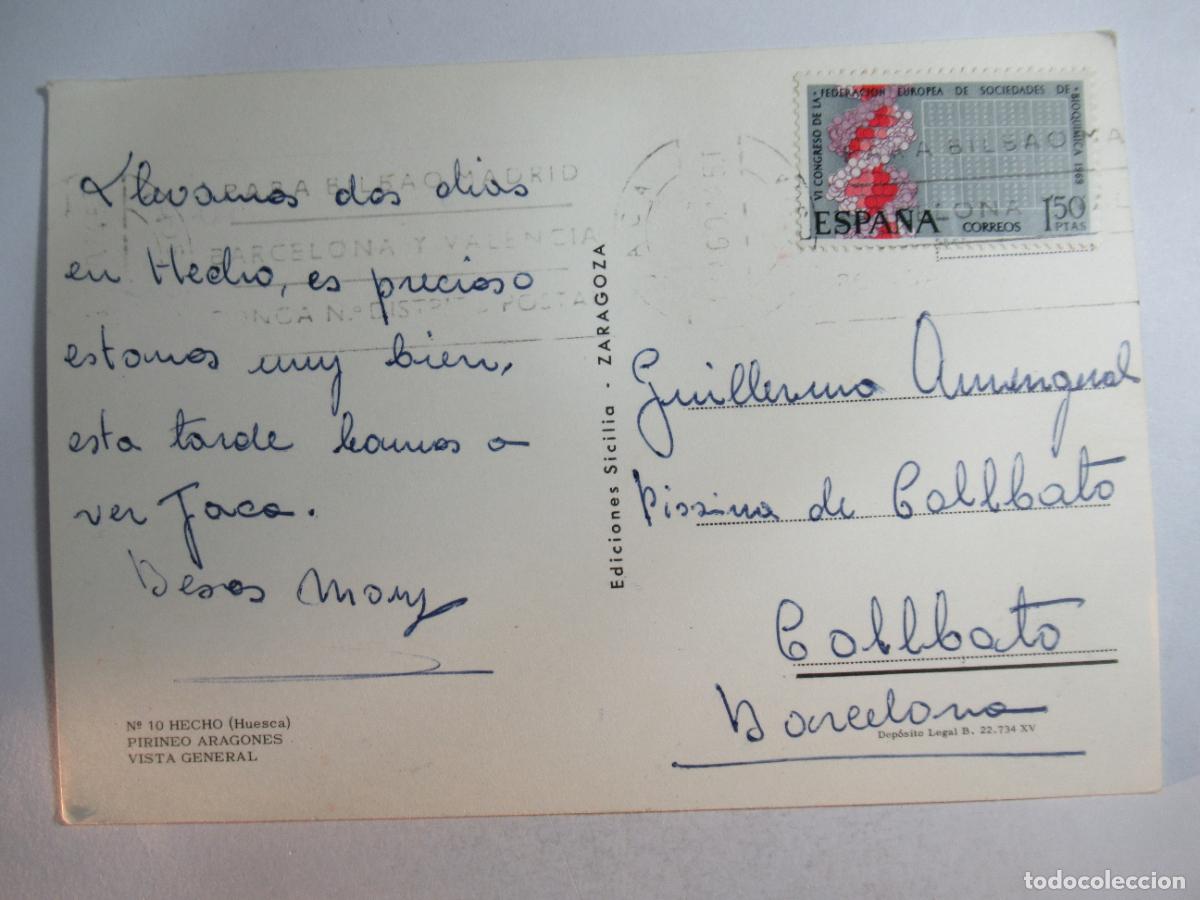 Llevamos dos dias
en Hecho, es precioso
estamos muy bien,
esta tarde bamos a
ver Jaca.
Besos Mary
Nº 10 HECHO (Huesca)
PIRINEO ARAGONES
VISTA GENERAL
PARA BILBAO MADRID
BARCELONA Y VALENCIA
PONGA Nº DISTRITO POSTAL
Ediciones Sicilia - ZARAGOZA
VI CONGRESO DE LA FEDERACION EUROPEA DE SOCIEDADES DE BIOQUIMICA 1969
ESPAÑA CORREOS 1'50 PTAS
BILBAO MA
Guillermo Amengual
Pissina de Collbato
Collbato
Barcelona
Depósito Legal B. 22.734 XV
todocoleccion